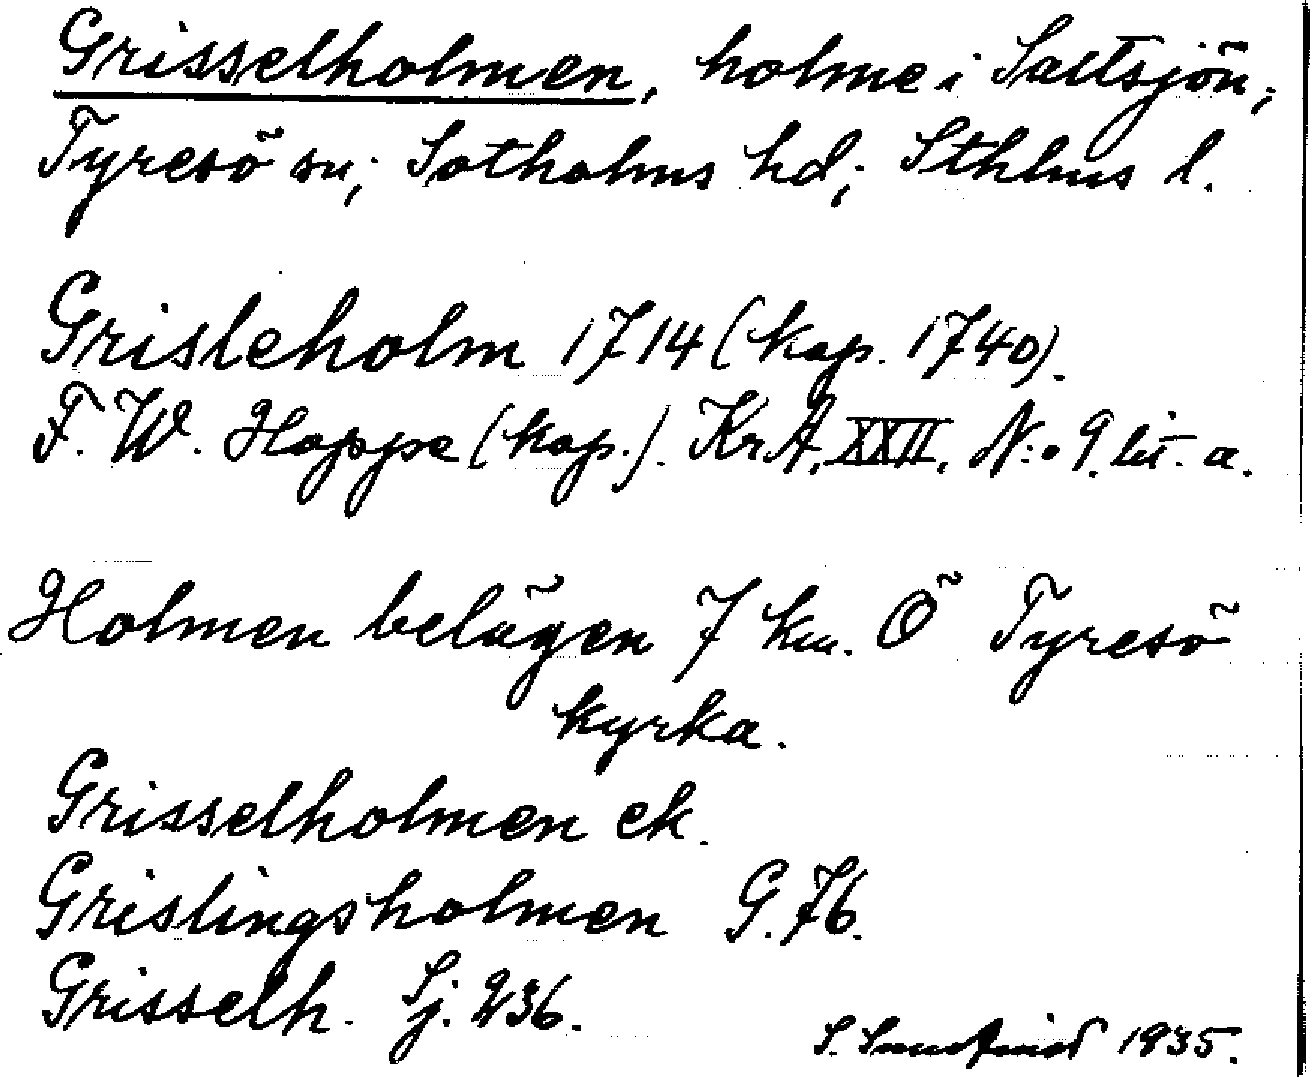 Grisselholmen, holme i Saltsjön,
Tyresö sn; Sotholms hd; Sthlms l.
Grisleholm 1714 (kop. 1740).
F. W. Hoppe (kop.). KrA, XXII, N:o 9. lit. a.
Holmen belägen 7 km. Ö Tyresö
kyrka.
Grisselholmen ek.
Grislingsholmen G. 76.
Grisselh. Sj. 236.
S. 1935.